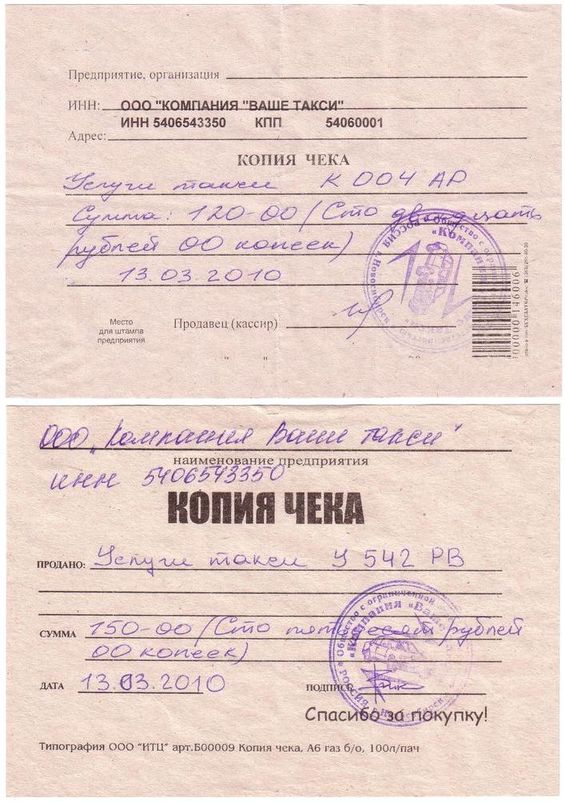 Предприятие, организация
ИНН: ООО "КОМПАНИЯ "ВАШЕ ТАКСИ"
ИНН 5406543350 КПП 54060001
Адрес:
КОПИЯ ЧЕКА
Услуги такси К 004 АР
Сумма: 120-00 (Сто двадцать
рублей 00 копеек)
13.03.2010
Место
для штампа
предприятия
Продавец (кассир)
00000146006
ООО "Компания Ваше такси"
наименование предприятия
ИНН 5406543350
КОПИЯ ЧЕКА
ПРОДАНО: Услуги такси У 542 РВ
СУММА 150-00 (Сто пятьдесят рублей
00 копеек)
ДАТА 13.03.2010 ПОДПИСЬ
Спасибо за покупку!
Типография ООО "ИТЦ" арт.Б00009 Копия чека, А6 газ б/о, 100л/пач